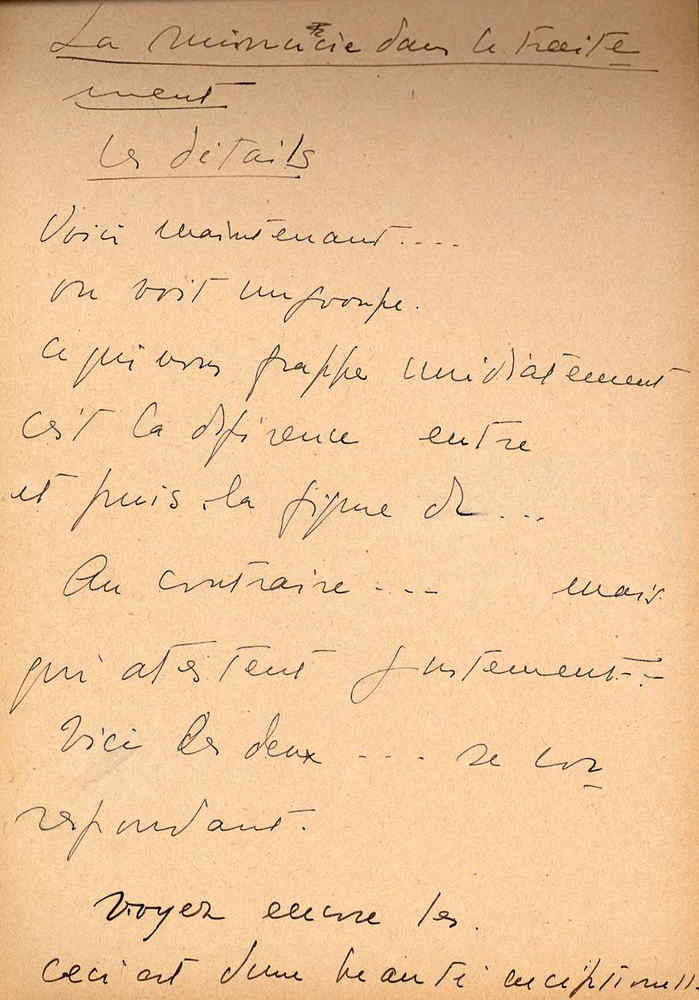 La minucie dans le traite
ment
Les détails
Voici maintenant....
on voit un groupe.
ce qui vous frappe imidiatement
c'est la diference entre
et puis la figure de ...
Au contraire ... mais
qui atestent justement...
Vici les deux .... se cor
respondant.
Voyez encore les.
ceci est d'une beauté exceptionell